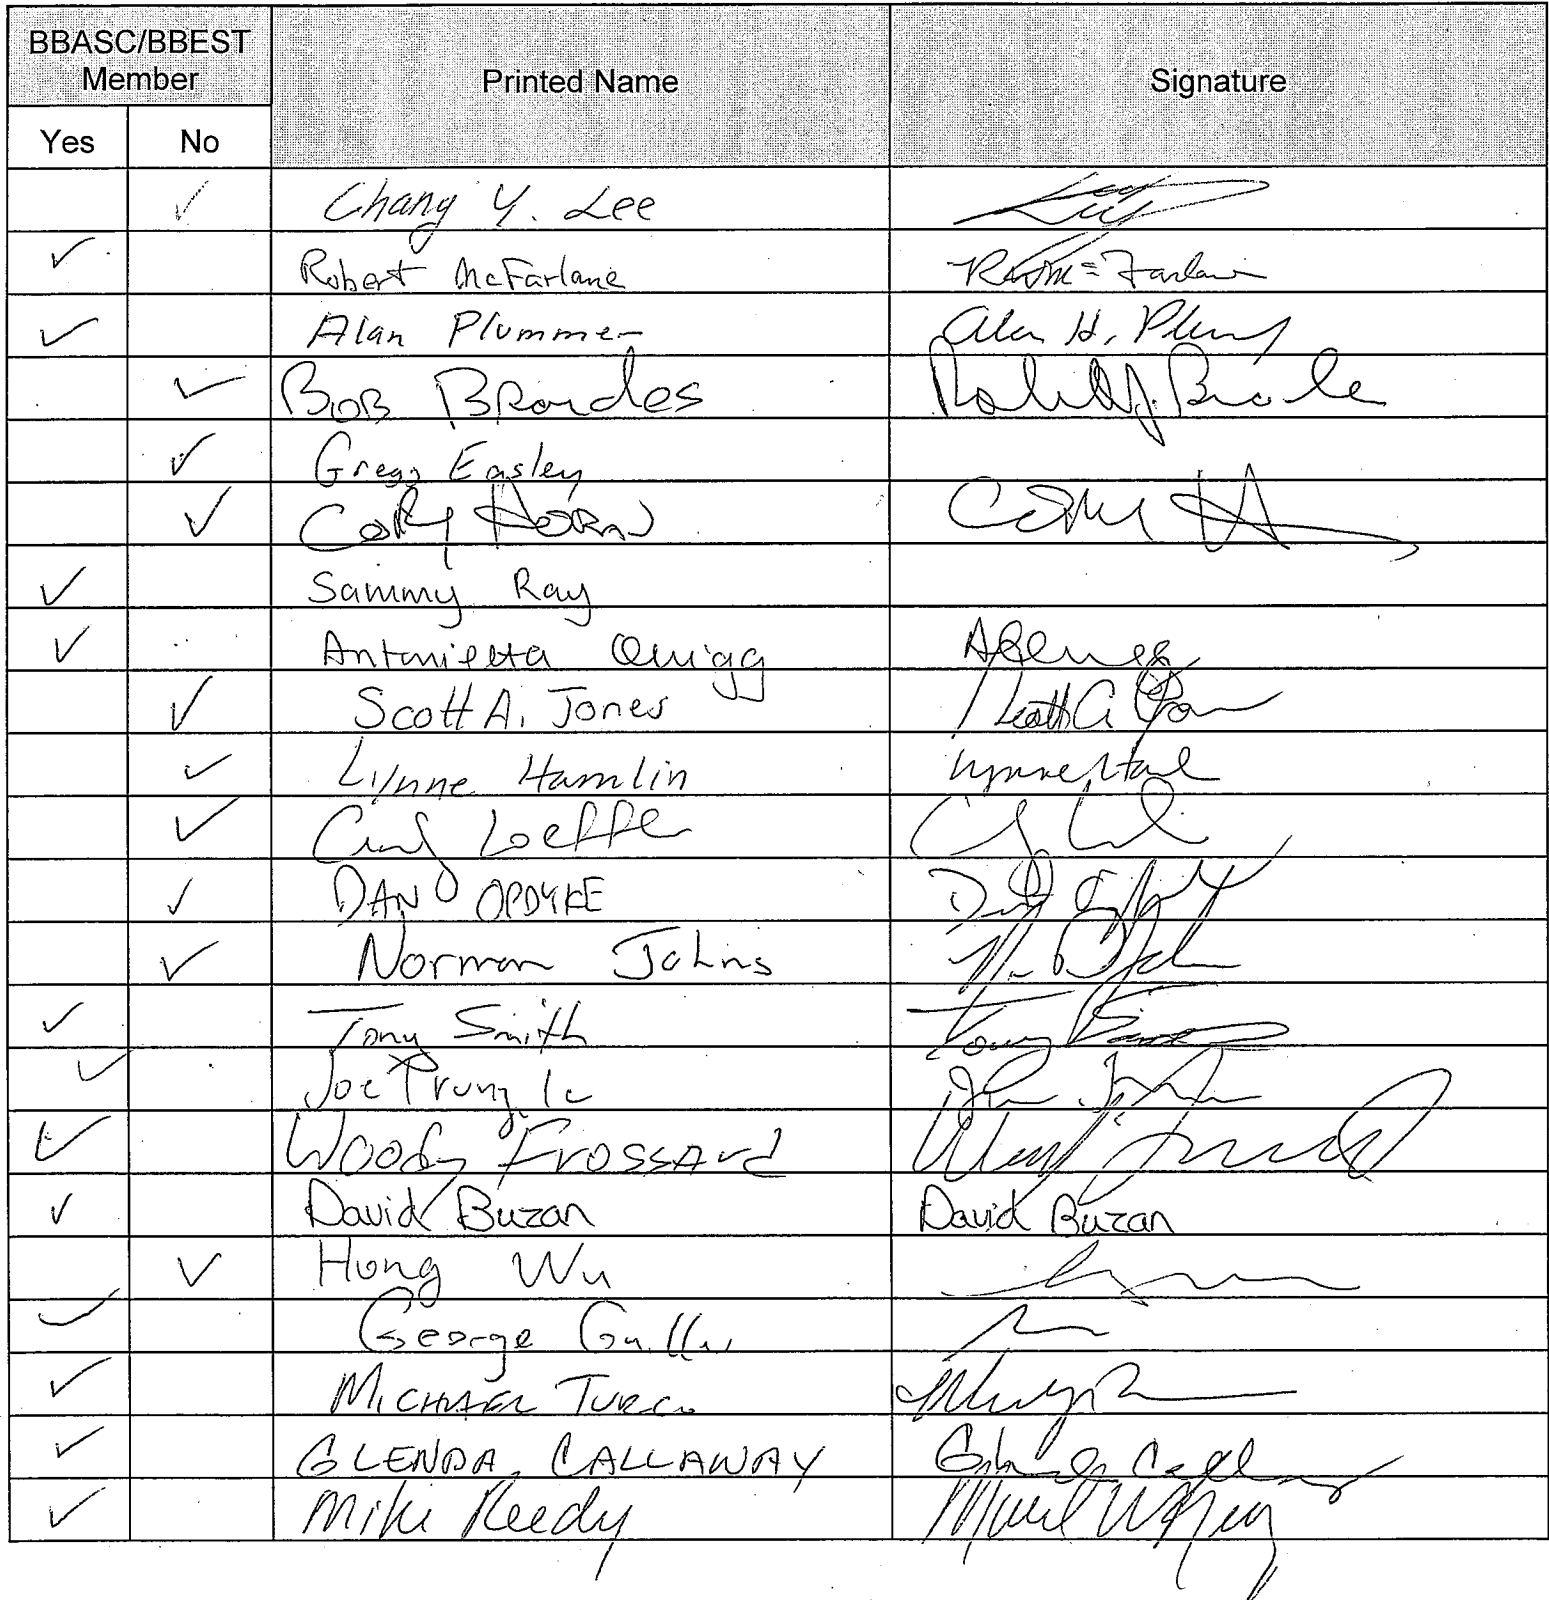 BBASC/BBEST Member Printed Name Signature
Yes No
✓ Chang Y. Lee
✓ Robert McFarlane
✓ Alan Plummer Alan H. Plummer
✓ Bob Brandes
✓ Gregg Easley
✓ Cory Horan Cory H
✓ Sammy Ray
✓ Antonietta Quigg
✓ Scott A. Jones Scott A Jones
✓ Lynne Hamlin
✓ Cindy Loeffler
✓ DAN OPDYKE
✓ Norman Johns
✓ Tony Smith Tony Smith
✓ Joe Trungale
✓ Woody Frossard
✓ David Buzan David Buzan
✓ Hong Wu
✓ George Guillen
✓ MICHAEL TURCO
✓ GLENDA CALLAWAY Glenda Callaway
✓ Mike Reedy